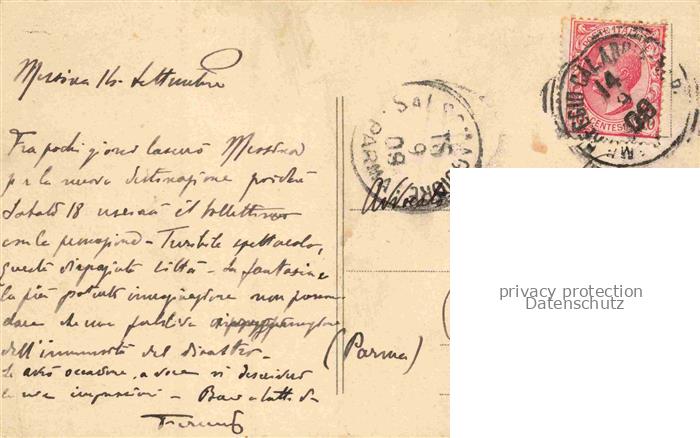 Messina 14 Settembre
Fra pochi giorni lascerò Messina
per la nuova destinazione poichè
Sabato 18 uscirà il bollettino
con la promozione - Terribile spettacolo,
questa disgraziata città - la fantasia
la più potente immaginazione non possono
dare che una pallida
dell'immensità del disastro -
Se avrò occasione, a voce vi descriverò
le mie impressioni -
Avvocato
(Parma)
SALSOMAGGIORE
15 9 09
PARMA
REGGIO CALABRIA
14 9 09
POSTE ITALIANE
CENTESIMI 10
privacy protection
Datenschutz